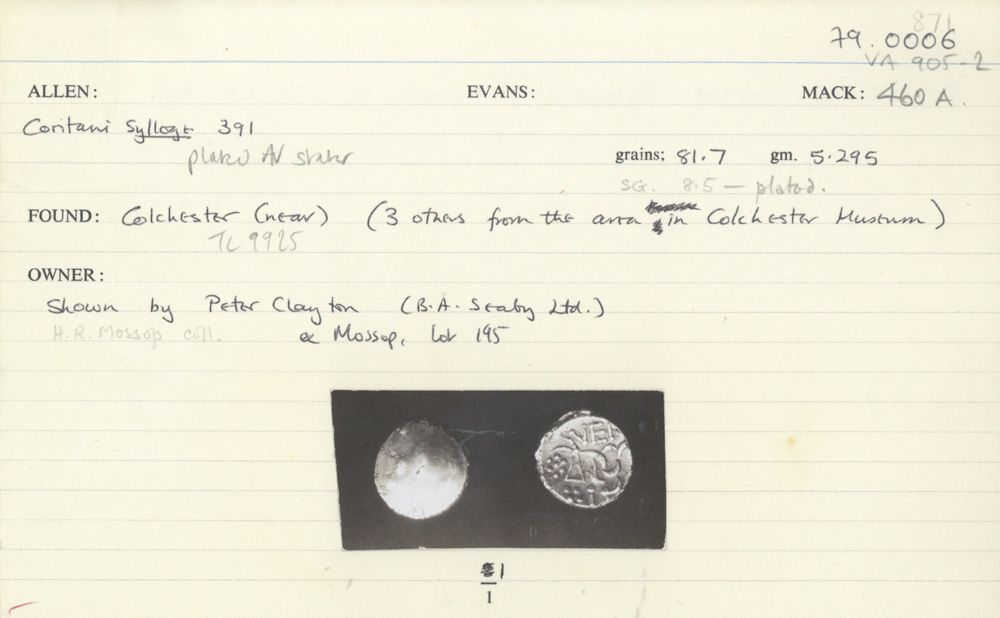 871
79.0006
VA 905-2
ALLEN: EVANS: MACK: 460 A.
Coritani Sylloge 391
plated AV stater
grains; 81.7 gm. 5.295
SG. 8.5 — plated.
FOUND: Colchester (near) (3 others from the area in Colchester Museum)
TL 9925
OWNER:
Shown by Peter Clayton (B.A. Seaby Ltd.)
H.R. Mossop coll. ex Mossop, lot 195
VEP
1
1